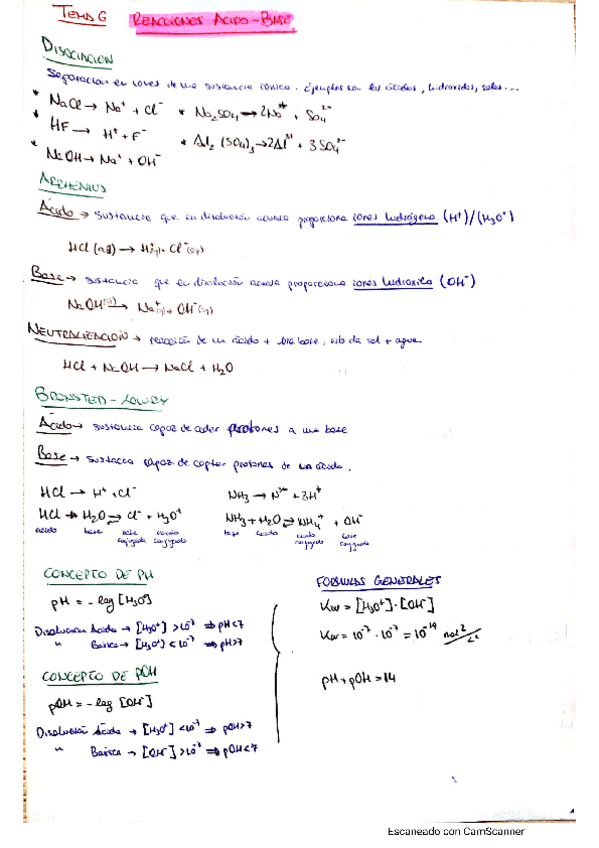 TEMA 6 REACCIONES ACIDO-BASE
DISOCIACION
Separacion en iones de una sustancia iónica. Ejemplos son los ácidos, hidroxidos, sales...
* NaCl → Na⁺ + Cl⁻ * Na₂SO₄ → 2Na⁺ + SO₄²⁻
* HF → H⁺ + F⁻
* Al₂(SO₄)₃ → 2Al³⁺ + 3SO₄²⁻
* NaOH → Na⁺ + OH⁻
ARRHENIUS
Ácido → sustancia que en disolución acuosa proporciona iones hidrógeno (H⁺)/(H₃O⁺)
HCl (aq) → H⁺(aq) + Cl⁻(aq)
Base → sustancia que en disolución acuosa proporciona iones hidroxilo (OH⁻)
NaOH(aq) → Na⁺(aq) + OH⁻(aq)
NEUTRALIZACION → reacción de un ácido + una base, da sal + agua
HCl + NaOH → NaCl + H₂O
BRONSTED-LOWRY
Ácido → sustancia capaz de ceder protones a una base
Base → sustancia capaz de captar protones de un ácido.
HCl → H⁺ + Cl⁻ NH₃ → N³⁻ + 3H⁺
HCl + H₂O ⇌ Cl⁻ + H₃O⁺ NH₃ + H₂O ⇌ NH₄⁺ + OH⁻
acido base base conjugada acido conjugado base acido acido conjugado base conjugada
CONCEPTO DE PH
pH = -log [H₃O⁺]
Disolucion Acida → [H₃O⁺] > 10⁻⁷ ⇒ pH<7
" Basica → [H₃O⁺] < 10⁻⁷ ⇒ pH>7
CONCEPTO DE POH
pOH = -log [OH⁻]
Disolución Ácida → [H₃O⁺] < 10⁻⁷ ⇒ pOH>7
" Basica → [OH⁻] > 10⁻⁷ ⇒ pOH<7
FORMULAS GENERALES
Kw = [H₃O⁺]·[OH⁻]
Kw = 10⁻⁷ · 10⁻⁷ = 10⁻¹⁴ mol²/L²
pH + pOH = 14
Escaneado con CamScanner